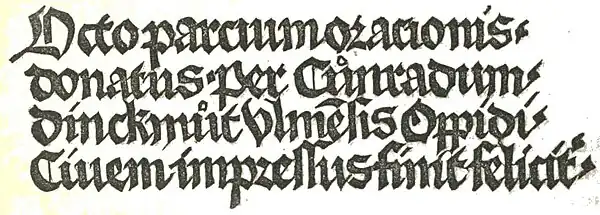 Octo parcium oracionis·
donatus· per Cůnradum·
dinckmůt Vlmēsis Oppidi·
Ciuem impressus finit felicit᾽·